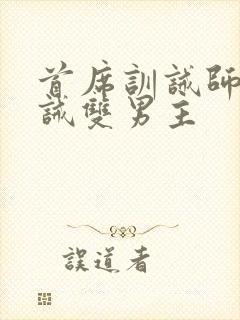 首席訓誡師
誡雙男主
誤道者